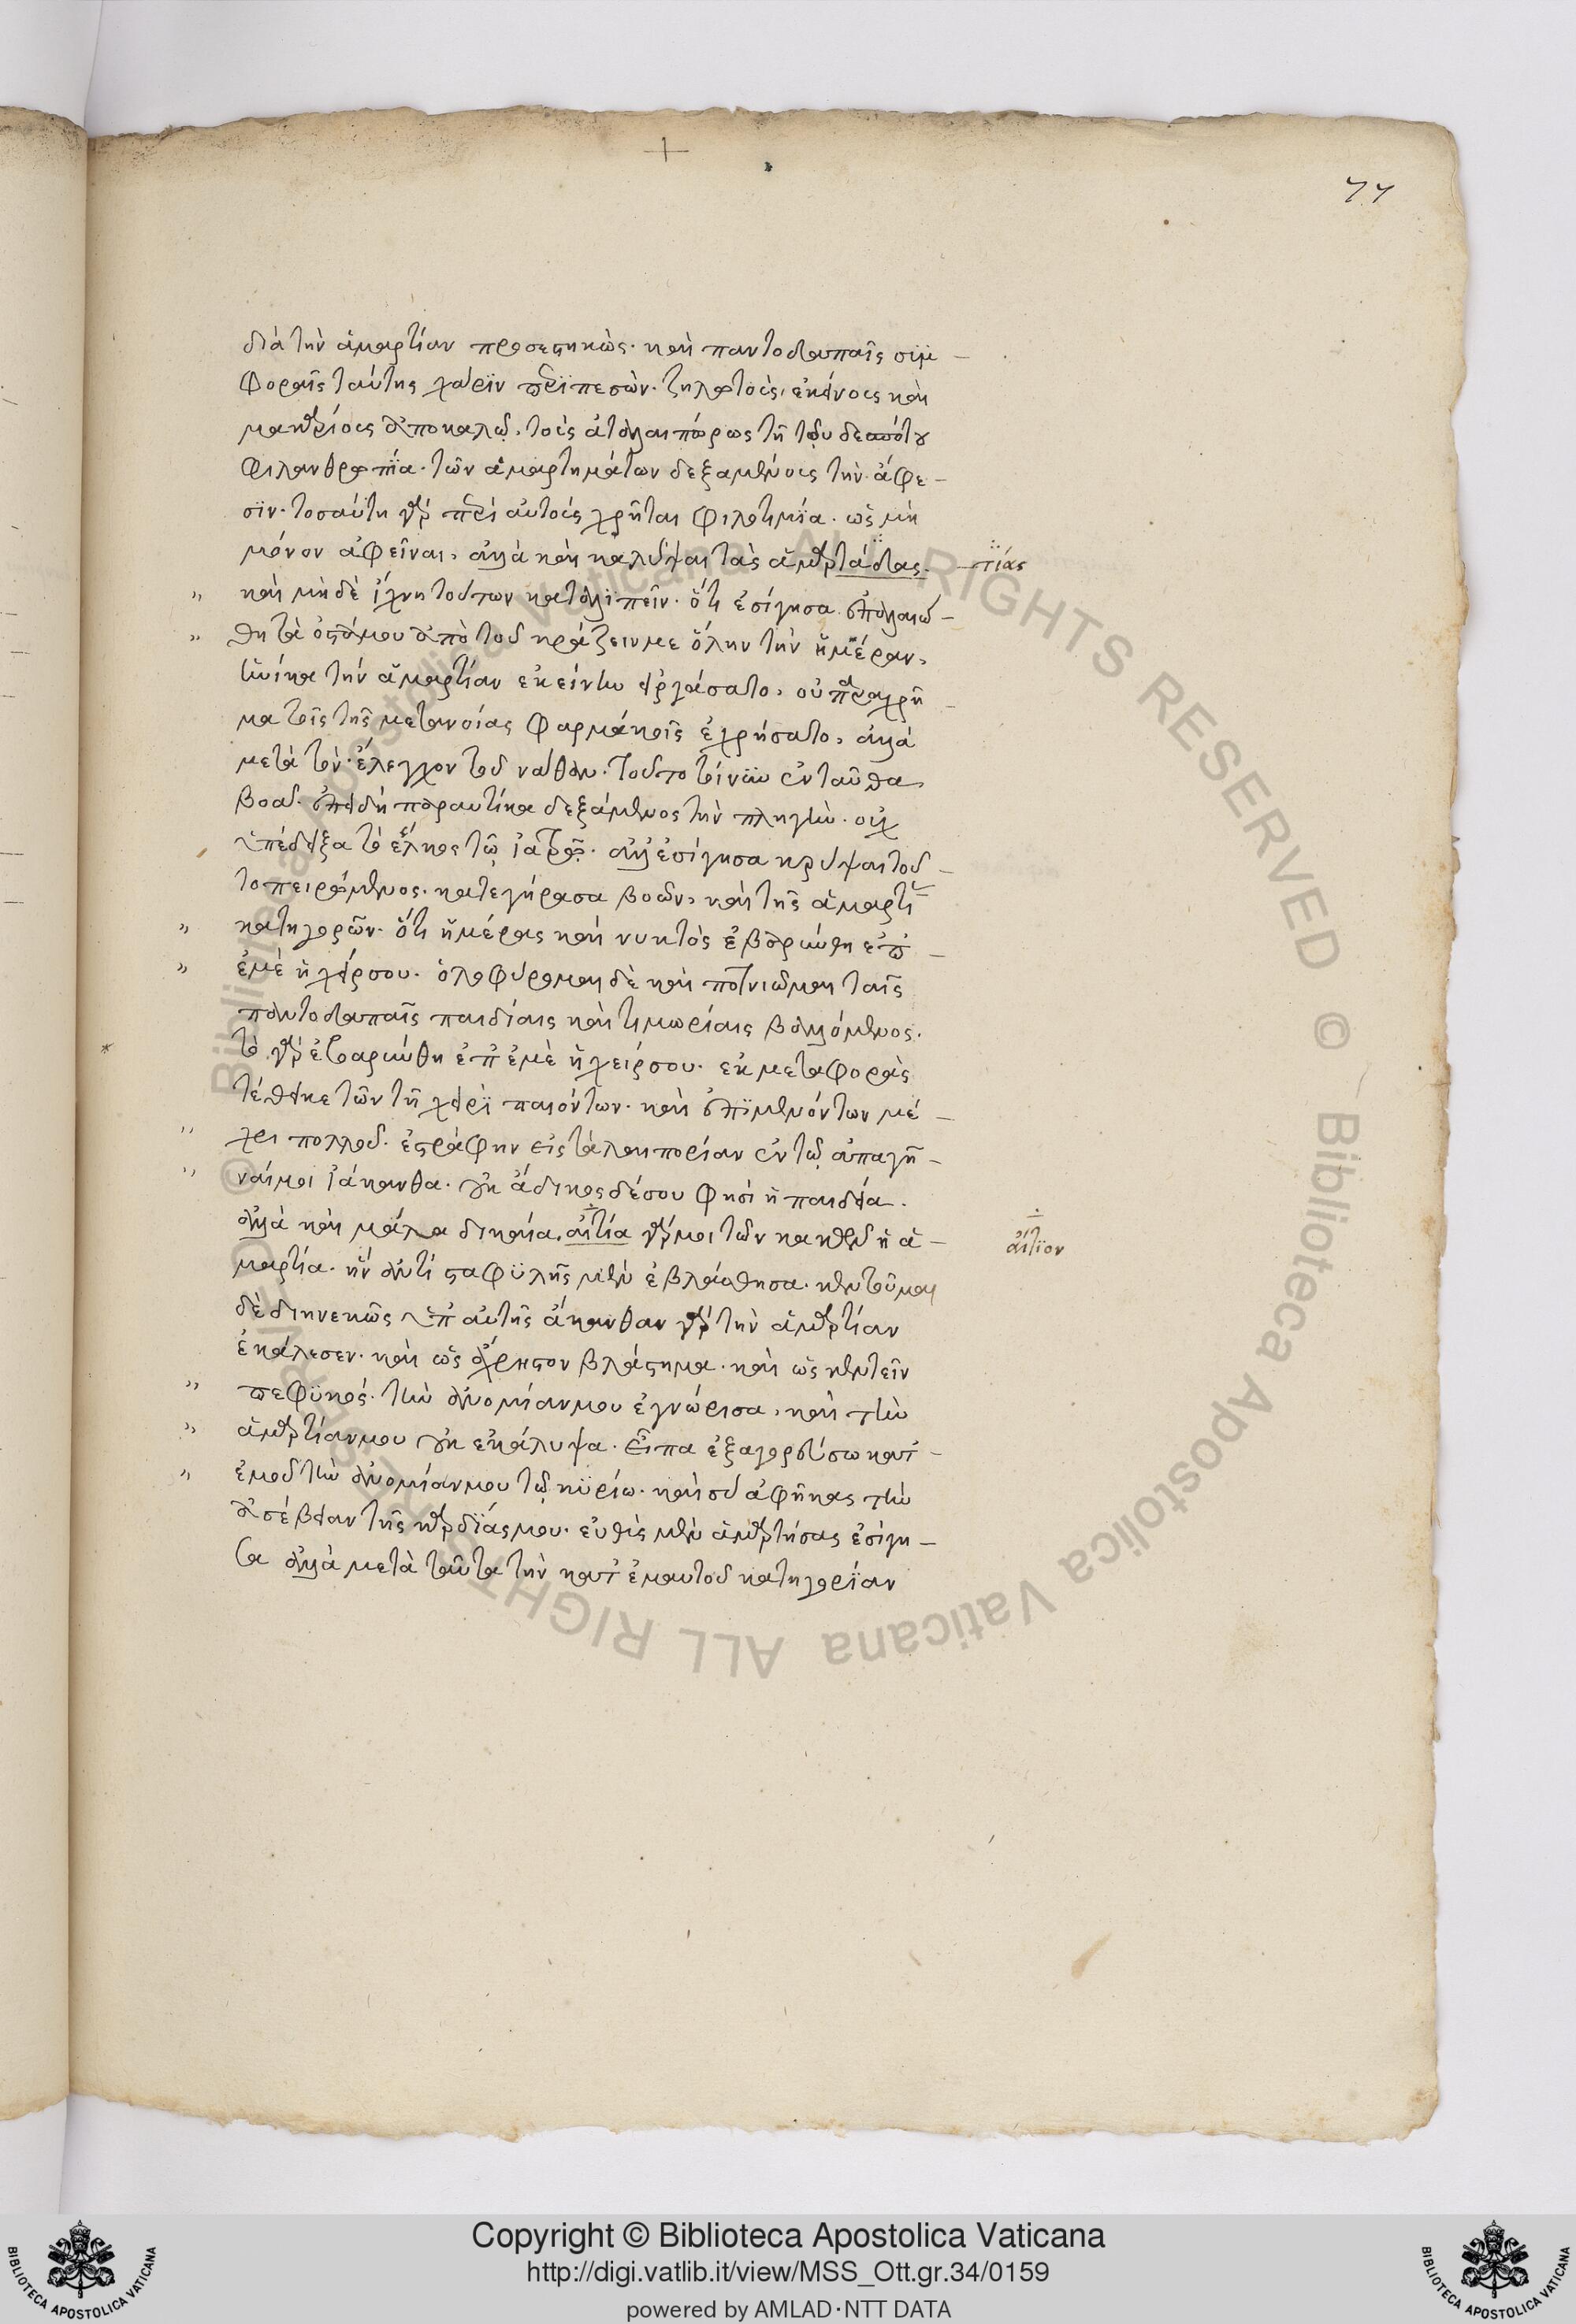 77
διὰ τὴν ἁμαρτίαν προσεπηκὼς· καὶ παντοδαπαῖς συμ-
φοραῖς ταύτης χάριν περϊπεσὼν· ζηλωτοὺς, ἐκείνους καὶ
μακαρίους ἀποκαλῶ, τοὺς ἀταλαιπώρως τῆ τοῦ δεσπότου
φιλανθρωπΐα· τῶν ἁμαρτημάτων δεξαμένους τὴν ἄφε-
σϊν· τοσαύτη γὰρ περὶ αὐτοὺς χρῆται φιλοτιμΐα· ὡς μὴ
μόνον ἀφεῖναι, ἀλλὰ καὶ καλύψαι τὰς ἁμαρτάδας. -τίας
" καὶ μὴ δὲ ἴχνη τούτων καταλϊπεῖν· ὅτι ἐσίγησα ἐπαλαιώ-
" θη τὰ ὀστᾶ μου ἀπὸ τοῦ κράζειν με ὅλην τὴν ἡμέραν,
ἡνίκα τὴν ἁμαρτίαν ἐκείνην εἰργάσατο, οὐ παραχρῆ-
μα τοῖς τῆς μετανοίας φαρμάκοις ἐχρήσατο, ἀλλὰ
μετὰ τὸν ἔλεγχον τοῦ νάθαν· τοῦτο τοίνυν ἐνταῦθα
βοᾶ· ἐπειδὴ παραυτίκα δεξάμενος τὴν πληγὴν· οὐχ
ὑπέδειξα τὸ ἕλκος τῶ ἰατρῶ· ἀλλ' ἐσίγησα κρύψαι τοῦ-
το πειρώμενος· κατεγήρασα βοῶν, καὶ τῆς ἁμαρτί
" κατηγορῶν· ὅτι ἡμέρας καὶ νυκτὸς ἐβαρύνθη ἐπ'
" ἐμὲ ἡ χείρ σου· ὀλοφύρομαι δὲ καὶ ποτνιῶμαι ταῖς
παντοδαπαῖς παιδίαις καὶ τιμωρίαις βαλλόμενος.
* τὸ γὰρ ἐβαρύνθη ἐπ' ἐμὲ ἡ χείρ σου· ἐκ μεταφορὰς
τέθεικε τῶν τῆ χειρϊ παιόντων· καὶ ἐπϊμενόντων μέ-
" χρι πολλοῦ· ἐστράφην εἰς ταλαιπορίαν ἐν τῶ ἐμπαγῆ-
" ναί μοι ἰάκανθα· οὐκ ἄδικος δέ σου φησὶ ἡ παιδεία·
ἀλλὰ καὶ μάλα δικαία, αἰτία γάρ μοι τῶν κακῶν ἡ ἁ- αἴτϊον
μαρτία· ἣν ἀντὶ σταφϋλῆς μὲν ἐβλάστησα· κεντοῦμαι
δὲ διηνεκῶς ὑπ' αὐτῆς ἄκανθαν γὰρ τὴν ἁμαρτίαν
ἐκάλεσεν· καὶ ὡς ἄχρηστον βλάστημα· καὶ ὡς κεντεῖν
" πεφϋκός· τὴν ἀνομίαν μου ἐγνώρισα, καὶ τὴν
" ἁμαρτίαν μου οὐκ ἐκάλυψα· εἶπα ἐξαγορεύσω κατ'
" ἐμοῦ τὴν ἀνομίαν μου τῶ κϋρίω· καὶ σὺ ἀφῆκας τὴν
ἀσέβειαν τῆς καρδίας μου· εὐθὺς μὲν ἁμαρτήσας ἐσίγη-
σα ἀλλὰ μετὰ ταῦτα τὴν κατ' ἐμαυτοῦ κατηγορΐαν
Copyright © Biblioteca Apostolica Vaticana
http://digi.vatlib.it/view/MSS_Ott.gr.34/0159
powered by AMLAD·NTT DATA
BIBLIOTECA APOSTOLICA VATICANA
BIBLIOTECA APOSTOLICA VATICANA
© Biblioteca Apostolica Vaticana ALL RIGHTS RESERVED
© Biblioteca Apostolica Vaticana ALL RIGHTS RESERVED